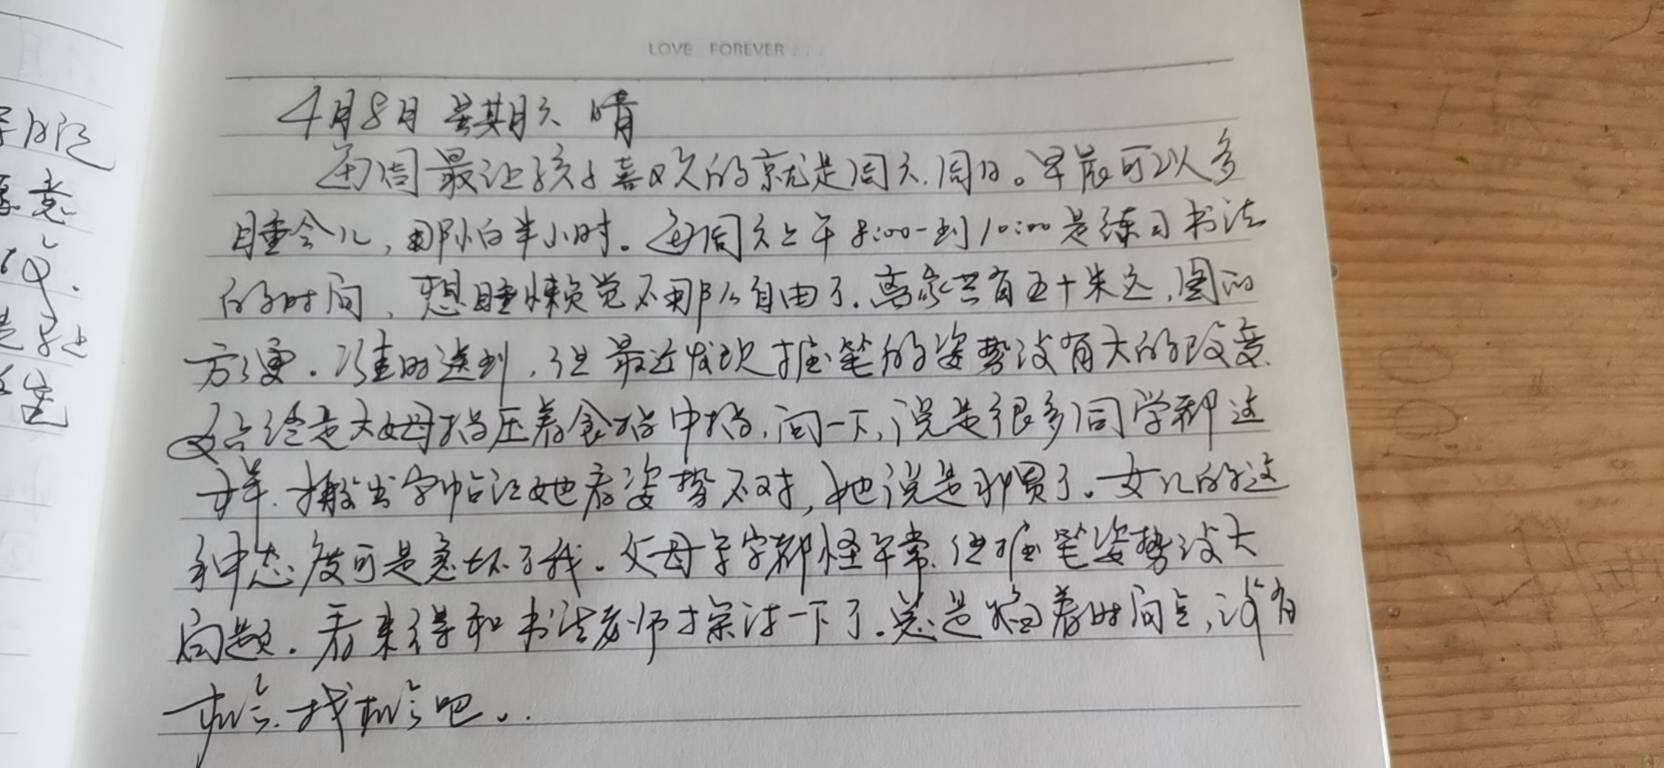 LOVE FOREVER...
4月8日 星期天 晴
每周最让孩子喜欢的就是周六.周日。早晨可以多
睡会儿,那怕半小时。每周六上午8:00-到10:00是练习书法
的的时间,想睡懒觉不那么自由了.离家只有五十米远,图的
方便.准时送到,但最近发现握笔的姿势没有大的改变.
总是大姆指压着食指中指,问一下,说是很多同学都这
样.搬出字帖让她看姿势不对,她说是习惯了.女儿的这
种态度可是急坏了我。父母写字都怪平常.但握笔姿势没大
问题.看来得和书法老师探讨一下了.总是掐着时间点,没有
机会.找机会吧..